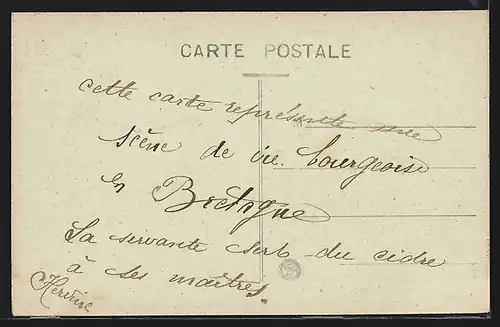 CARTE POSTALE
cette carte représente une
scène de vie bourgeoise
en Bretagne
La servante sert du cidre
à ses maîtres.